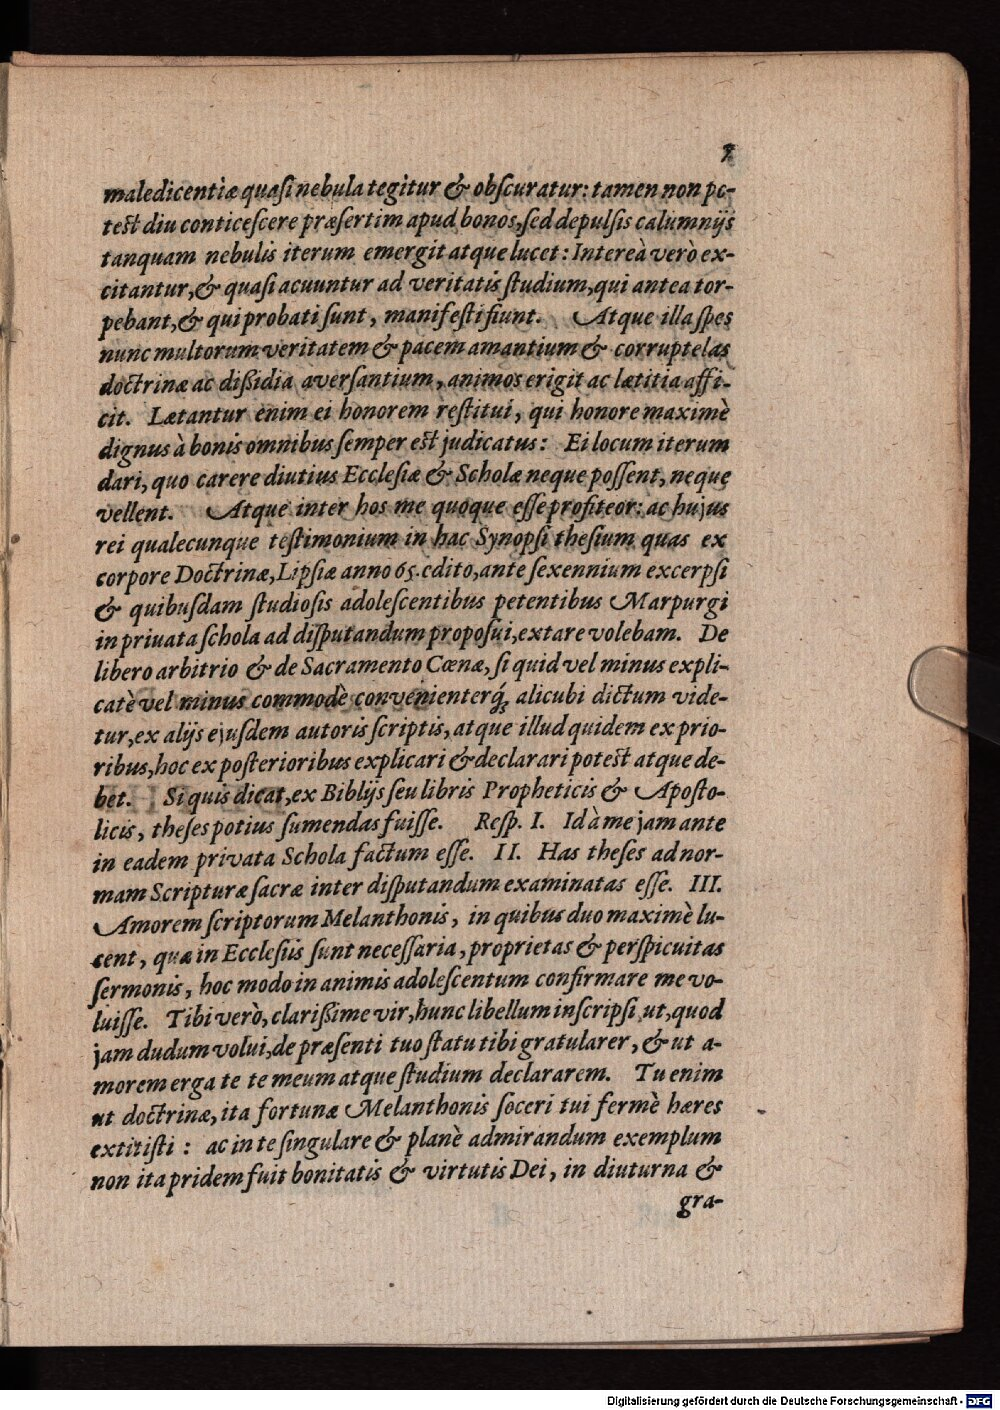 7
maledicentiæ quaſi nebula tegitur & obſcuratur: tamen non po-
teſt diu conticeſcere præſertim apud bonos, ſed depulſis calumnijs
tanquam nebulis iterum emergit atque lucet: Intereà verò ex-
citantur, & quaſi acuuntur ad veritatis ſtudium, qui antea tor-
pebant, & qui probati ſunt, manifeſti fiunt. Atque illa ſpes
nunc multorum veritatem & pacem amantium & corruptelas
doctrinæ ac dißidia averſantium, animos erigit ac lætitia affi-
cit. Lætantur enim ei honorem reſtitui, qui honore maximè
dignus à bonis omnibus ſemper eſt judicatus: Ei locum iterum
dari, quo carere diutius Eccleſiæ & Scholæ neque poſſent, neque
vellent. Atque inter hos me quoque eſſe profiteor: ac hujus
rei qualecunque teſtimonium in hac Synopſi theſium quas ex
corpore Doctrinæ, Lipſiæ anno 65. edito, ante ſexennium excerpſi
& quibuſdam ſtudioſis adoleſcentibus petentibus Marpurgi
in priuata ſchola ad diſputandum propoſui, extare volebam. De
libero arbitrio & de Sacramento Cœnæ, ſi quid vel minus expli-
catè vel minus commodè convenienterq́; alicubi dictum vide-
tur, ex alijs ejuſdem autoris ſcriptis, atque illud quidem ex prio-
ribus, hoc ex poſterioribus explicari & declarari poteſt atque de-
bet. Si quis dicat, ex Biblijs ſeu libris Propheticis & Apoſto-
licis, theſes potius ſumendas fuiſſe. Reſp. I. Id à me jam ante
in eadem privata Schola factum eſſe. II. Has theſes ad nor-
mam Scripturæ ſacræ inter diſputandum examinatas eſſe. III.
Amorem ſcriptorum Melanthonis, in quibus duo maximè lu-
cent, quæ in Eccleſiis ſunt neceſſaria, proprietas & perſpicuitas
ſermonis, hoc modo in animis adoleſcentum confirmare me vo-
luiſſe. Tibi verò, clarißime vir, hunc libellum inſcripſi ut, quod
jam dudum volui, de præſenti tuo ſtatu tibi gratularer, & ut a-
morem erga te te meum atque ſtudium declararem. Tu enim
ut doctrinæ, ita fortunæ Melanthonis ſoceri tui fermè hæres
extitiſti: ac in te ſingulare & planè admirandum exemplum
non ita pridem fuit bonitatis & virtutis Dei, in diuturna &
gra-
Digitalisierung gefördert durch die Deutsche Forschungsgemeinschaft - DFG